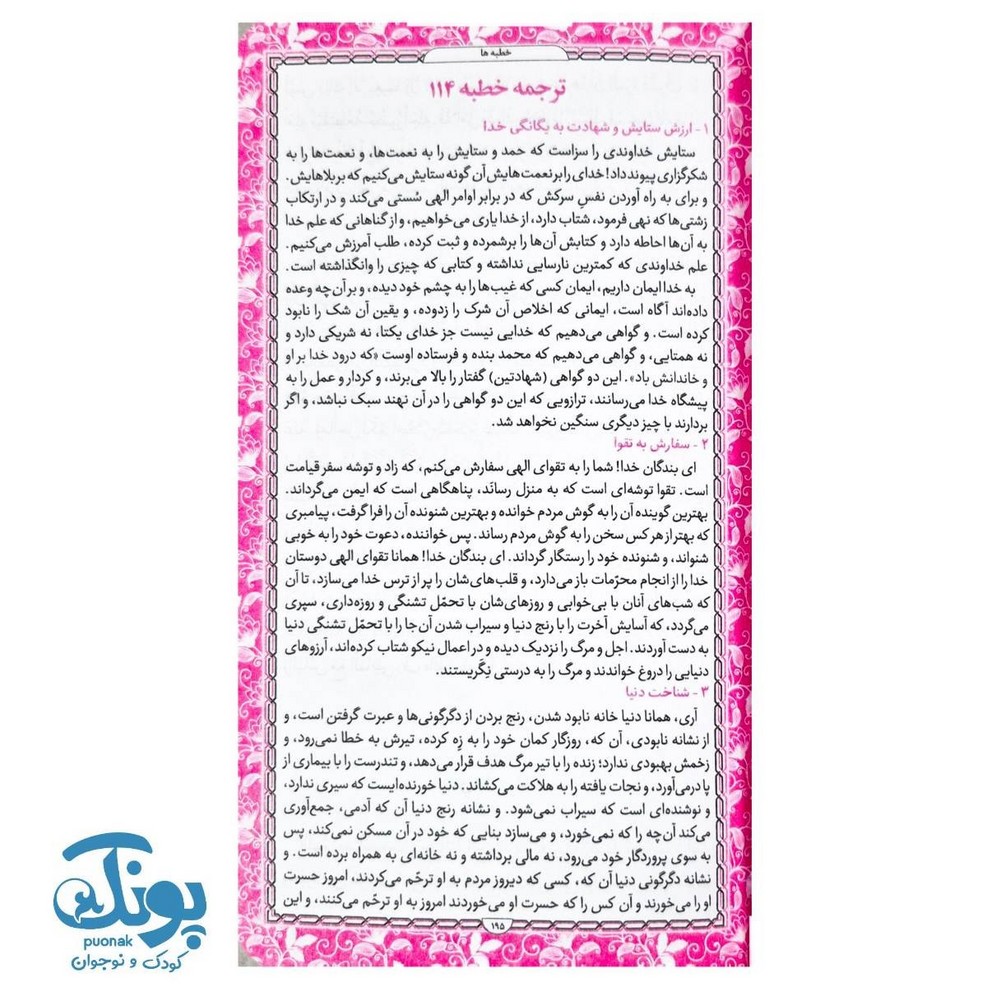 خطبه ها
ترجمه خطبه ۱۱۴
۱- ارزش ستایش و شهادت به یگانگی خدا
ستایش خداوندی را سزاست که حمد و ستایش را به نعمت‌ها، و نعمت‌ها را به
شکرگزاری پیوند داد! خدای را بر نعمت‌هایش آن گونه ستایش می‌کنیم که بر بلاهایش.
و برای به راه آوردن نفسِ سرکش که در برابر اوامر الهی سُستی می‌کند و در ارتکاب
زشتی‌ها که نهی فرمود، شتاب دارد، از خدا یاری می‌خواهیم، و از گناهانی که علم خدا
به آن‌ها احاطه دارد و کتابش آن‌ها را برشمرده و ثبت کرده، طلب آمرزش می‌کنیم.
علم خداوندی که کمترین نارسایی نداشته و کتابی که چیزی را وانگذاشته است.
به خدا ایمان داریم، ایمان کسی که غیب‌ها را به چشم خود دیده، و بر آن‌چه وعده
داده‌اند آگاه است، ایمانی که اخلاص آن شرک را زدوده، و یقین آن شک را نابود
کرده است. و گواهی می‌دهیم که خدایی نیست جز خدای یکتا، نه شریکی دارد و
نه همتایی، و گواهی می‌دهیم که محمد بنده و فرستاده اوست «که درود خدا بر او
و خاندانش باد». این دو گواهی (شهادتین) گفتار را بالا می‌برند، و کردار و عمل را به
پیشگاه خدا می‌رسانند، ترازویی که این دو گواهی را در آن نهند سبک نباشد، و اگر
بردارند با چیز دیگری سنگین نخواهد شد.
۲- سفارش به تقوا
ای بندگان خدا! شما را به تقوای الهی سفارش می‌کنم، که زاد و توشه سفر قیامت
است. تقوا توشه‌ای است که به منزل رسانَد، پناهگاهی است که ایمن می‌گرداند.
بهترین گوینده آن را به گوش مردم خوانده و بهترین شنونده آن را فرا گرفت، پیامبری
که بهتر از هر کس سخن را به گوش مردم رساند. پس خواننده، دعوت خود را به خوبی
شنواند، و شنونده خود را رستگار گرداند. ای بندگان خدا! همانا تقوای الهی دوستان
خدا را از انجام محرّمات باز می‌دارد، و قلب‌های‌شان را پر از ترس خدا می‌سازد، تا آن
که شب‌های آنان با بی‌خوابی و روزهای‌شان با تحمّل تشنگی و روزه‌داری، سپری
می‌گردد، که آسایش آخرت را با رنج دنیا و سیراب شدن آن‌جا را با تحمّل تشنگی دنیا
به دست آوردند. اجل و مرگ را نزدیک دیده و در اعمال نیکو شتاب کرده‌اند، آرزوهای
دنیایی را دروغ خواندند و مرگ را به درستی نِگریستند.
۳- شناخت دنیا
آری، همانا دنیا خانه نابود شدن، رنج بردن از دگرگونی‌ها و عبرت گرفتن است، و
از نشانه نابودی، آن که، روزگار کمان خود را به زِه کرده، تیرش به خطا نمی‌رود، و
زخمش بهبودی ندارد؛ زنده را با تیر مرگ هدف قرار می‌دهد، و تندرست را با بیماری از
پا درمی‌آورد، و نجات یافته را به هلاکت می‌کشاند. دنیا خورنده‌ایست که سیری ندارد،
و نوشنده‌ای است که سیراب نمی‌شود. و نشانه رنج دنیا آن که آدمی، جمع‌آوری
می‌کند آن‌چه را که نمی‌خورد، و می‌سازد بنایی که خود در آن مسکن نمی‌کند، پس
به سوی پروردگار خود می‌رود، نه مالی برداشته و نه خانه‌ای به همراه برده است. و
نشانه دگرگونی دنیا آن که، کسی که دیروز مردم به او ترحّم می‌کردند، امروز حسرت
او را می‌خورند و آن کس را که حسرت او می‌خوردند امروز به او ترحّم می‌کنند، و این
۱۹۵
پونک
puonak
کودک و نوجوان